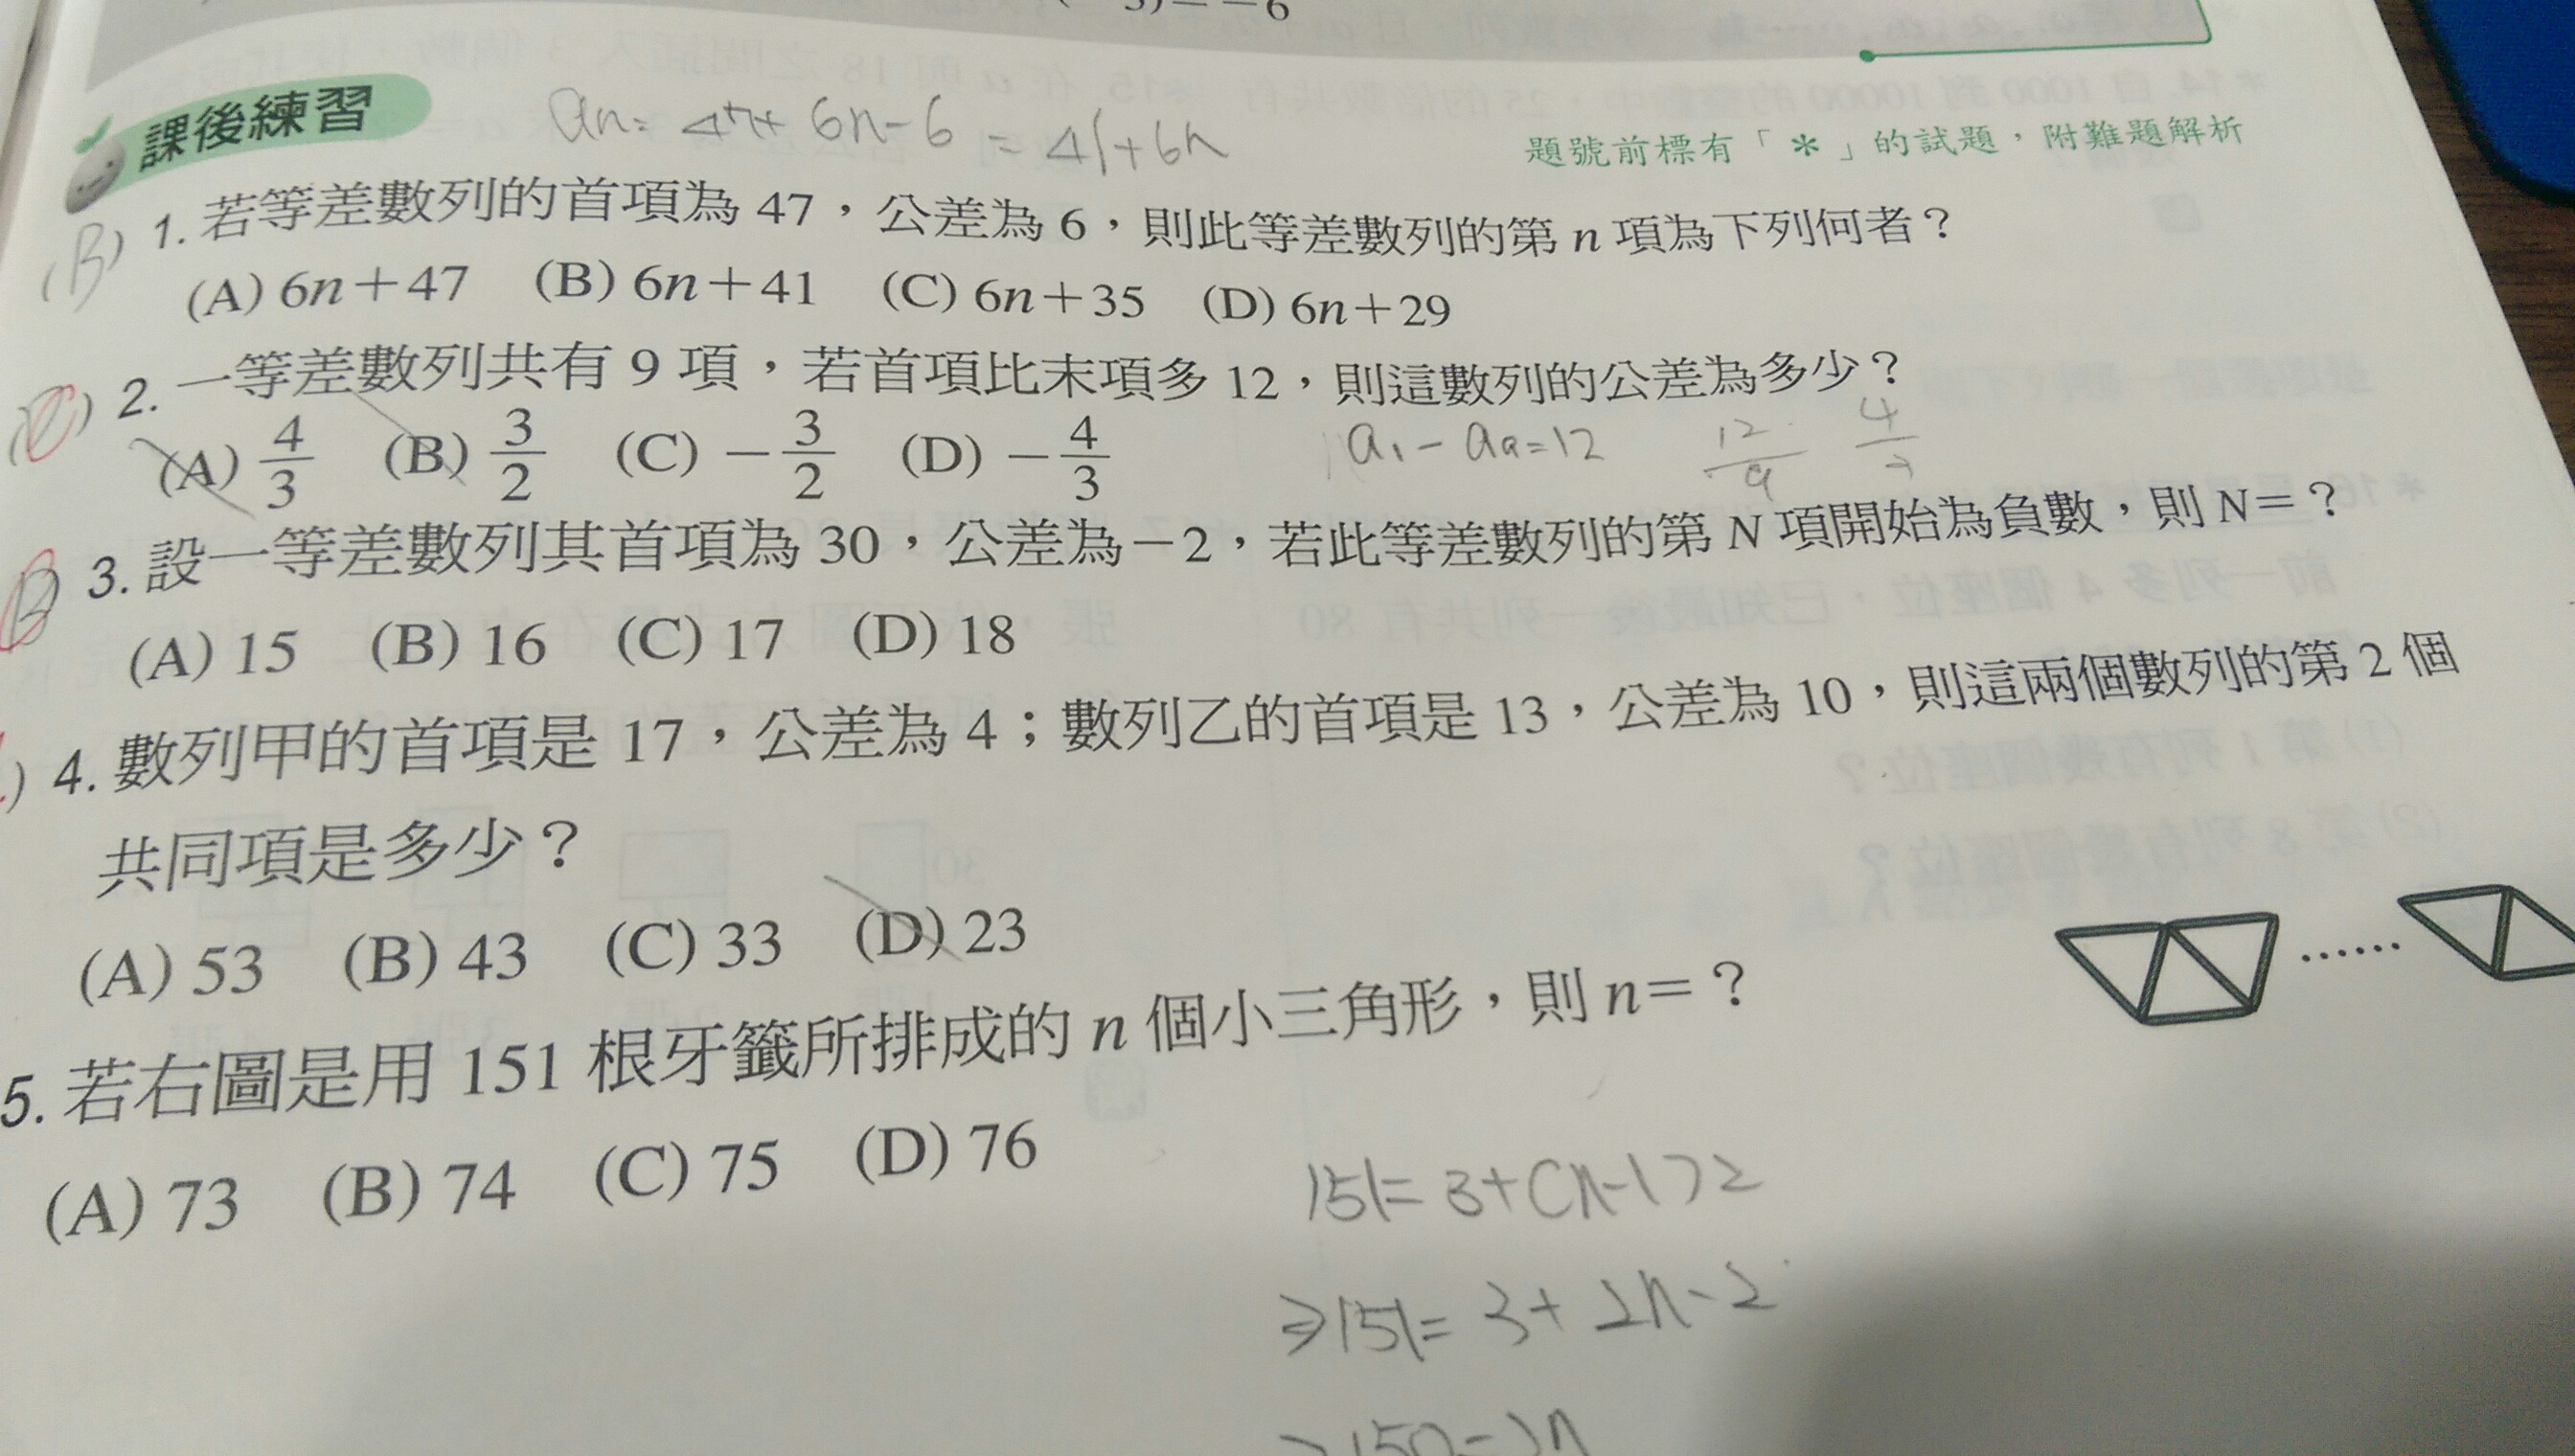 課後練習
an = 47+6n-6 = 41+6n
題號前標有「＊」的試題，附難題解析
(B) 1. 若等差數列的首項為 47，公差為 6，則此等差數列的第 n 項為下列何者？
(A) 6n＋47 (B) 6n＋41 (C) 6n＋35 (D) 6n＋29
2. 一等差數列共有 9 項，若首項比末項多 12，則這數列的公差為多少？
(A) 4/3 (B) 3/2 (C) －3/2 (D) －4/3
a1 - a9 = 12
12/9
3. 設一等差數列其首項為 30，公差為－2，若此等差數列的第 N 項開始為負數，則 N＝？
(A) 15 (B) 16 (C) 17 (D) 18
4. 數列甲的首項是 17，公差為 4；數列乙的首項是 13，公差為 10，則這兩個數列的第 2 個
共同項是多少？
(A) 53 (B) 43 (C) 33 (D) 23
5. 若右圖是用 151 根牙籤所排成的 n 個小三角形，則 n＝？
(A) 73 (B) 74 (C) 75 (D) 76
151= 3+(n-1)2
⇒151= 3+2n-2